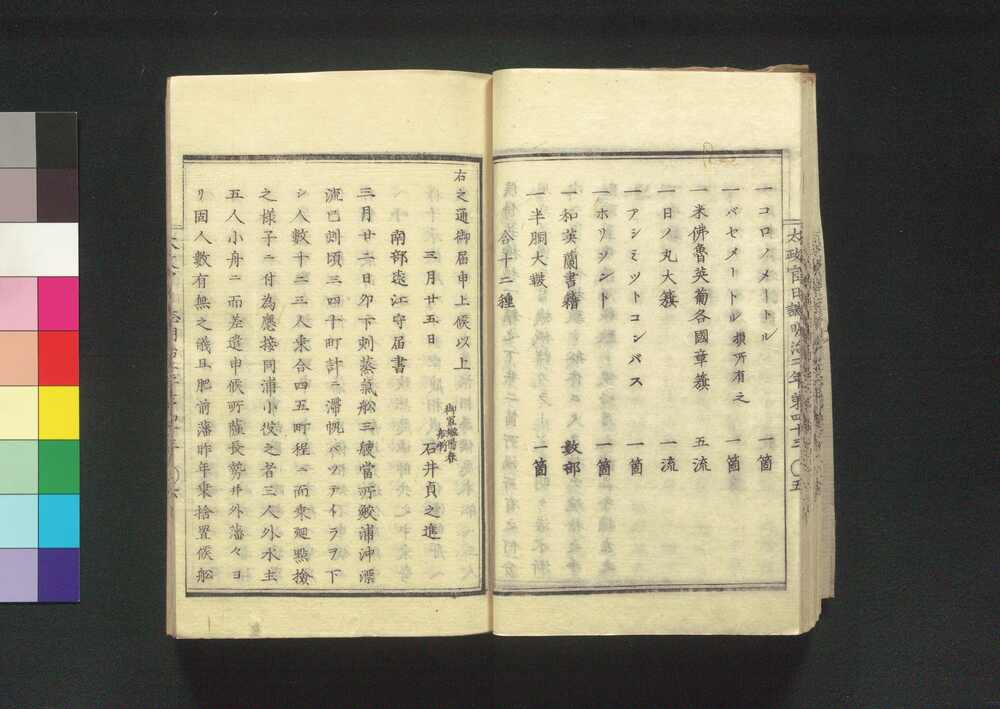 太政官日誌明治二年第四十三 〇五
一コロノメートル 一箇
一バセメートル 損所有之 一箇
一米佛魯英葡各國章籏 五流
一日ノ丸大籏 一流
一アシミツトコンパス 一箇
一ホリソント 一箇
一和英蘭書籍 數部
一半胴大皷 一箇
合十二種
右之通御届申上候以上
三月廿五日 石井貞之進
南部遠江守届書
三月廿二日卯下刻蒸氣舩三艘當所鮫浦沖漂
流巳刻頃三四十町計ニ滞帆バツテイラヲ下
シ人數十二三人乘合四五町程ニ而乘廻㸃撿
之樣子ニ付為應接同浦小役之者三人外水主
五人小舟ニ而差遣申候所薩長勢并外藩々ヨ
リ固人數有無之儀且肥前藩昨年乘捨置候舩